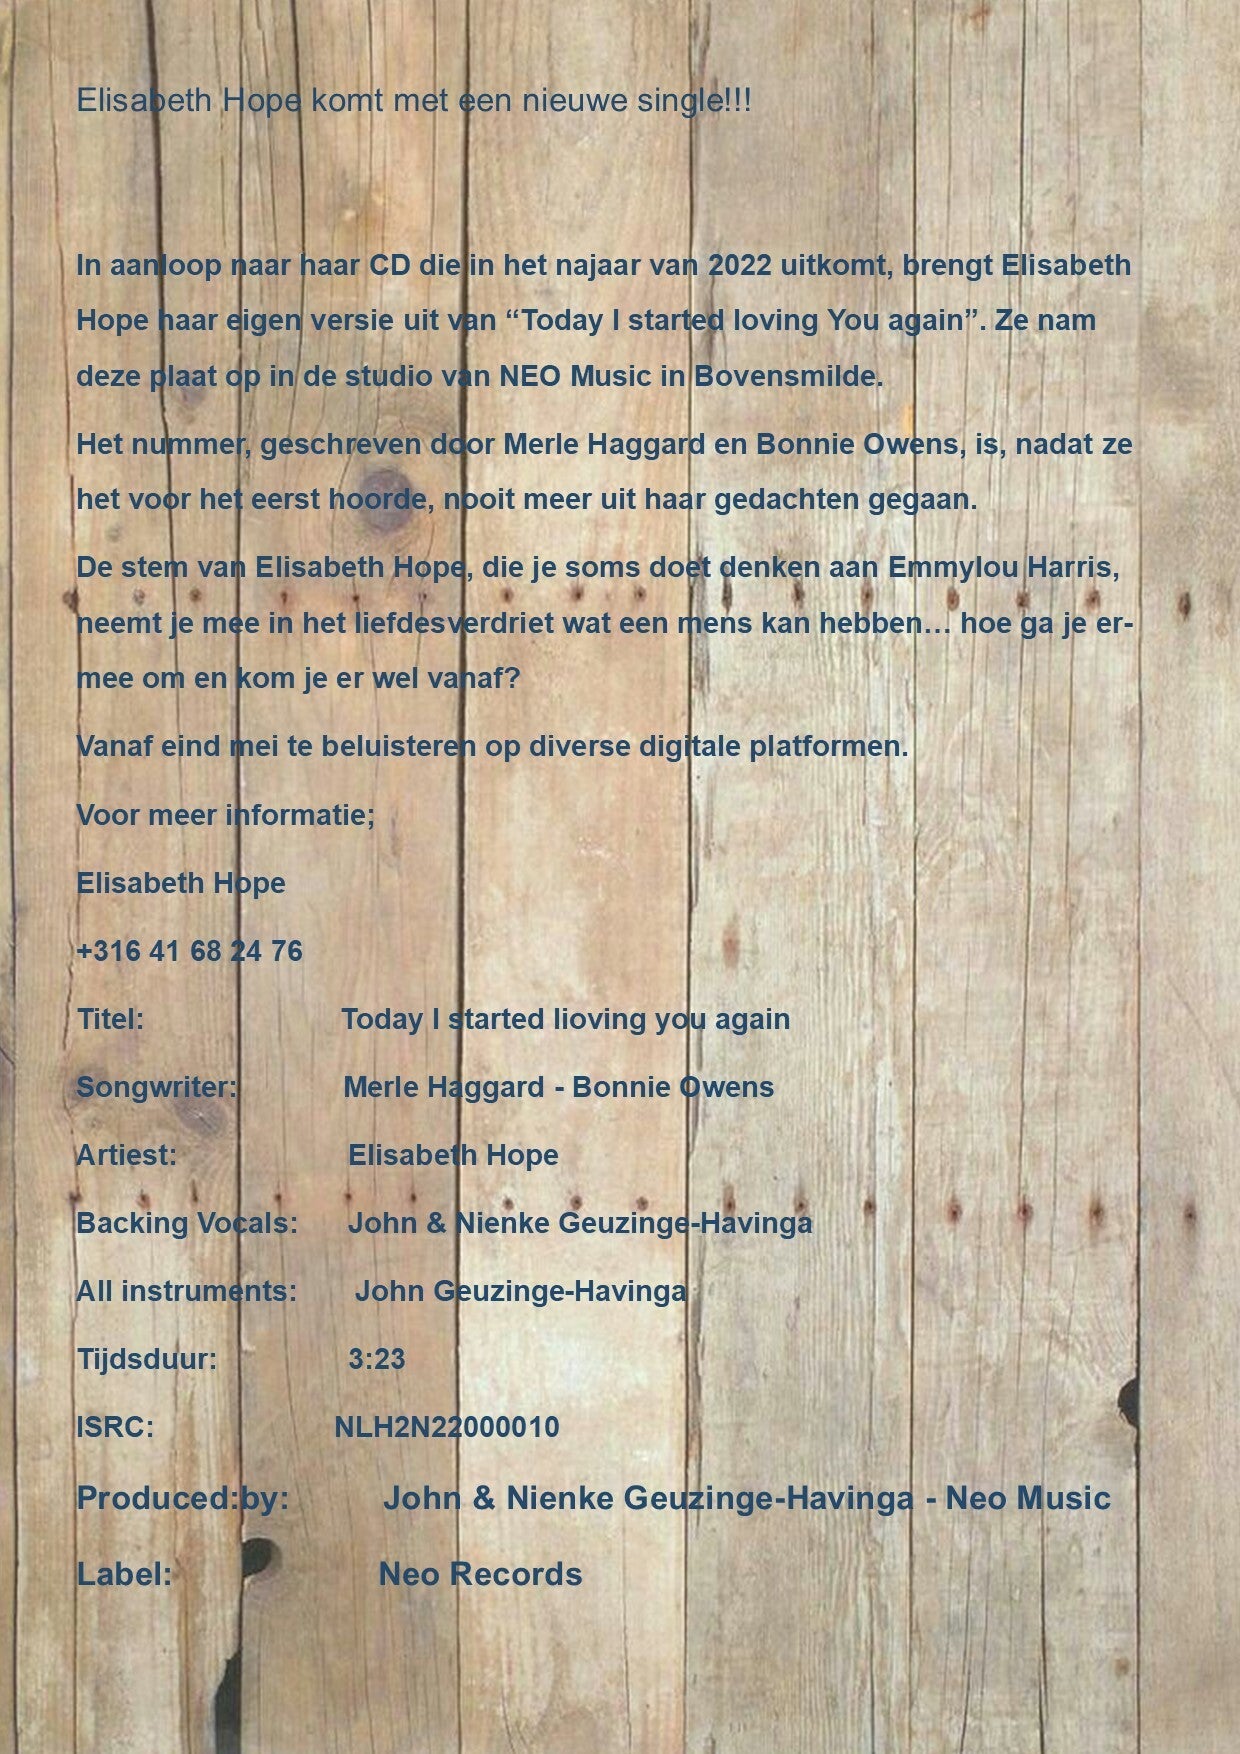 Elisabeth Hope komt met een nieuwe single!!!
In aanloop naar haar CD die in het najaar van 2022 uitkomt, brengt Elisabeth
Hope haar eigen versie uit van “Today I started loving You again”. Ze nam
deze plaat op in de studio van NEO Music in Bovensmilde.
Het nummer, geschreven door Merle Haggard en Bonnie Owens, is, nadat ze
het voor het eerst hoorde, nooit meer uit haar gedachten gegaan.
De stem van Elisabeth Hope, die je soms doet denken aan Emmylou Harris,
neemt je mee in het liefdesverdriet wat een mens kan hebben… hoe ga je er-
mee om en kom je er wel vanaf?
Vanaf eind mei te beluisteren op diverse digitale platformen.
Voor meer informatie;
Elisabeth Hope
+316 41 68 24 76
Titel: Today I started lioving you again
Songwriter: Merle Haggard - Bonnie Owens
Artiest: Elisabeth Hope
Backing Vocals: John & Nienke Geuzinge-Havinga
All instruments: John Geuzinge-Havinga
Tijdsduur: 3:23
ISRC: NLH2N22000010
Produced:by: John & Nienke Geuzinge-Havinga - Neo Music
Label: Neo Records